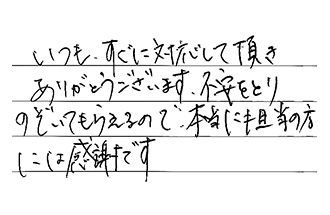 いつも、すぐに対応して頂き
ありがとうございます、不安をとり
のぞいてもらえるので、本当に担当の方
には感謝です